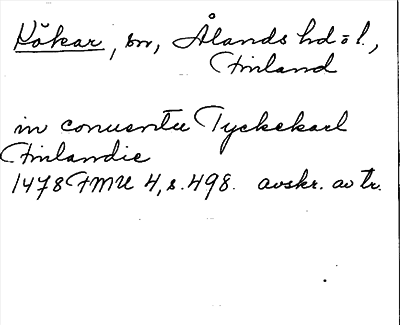 Kökar, sn, Ålands hd o l.,
Finland
in conuentu Tyckekarl
Finlandie
1478 FMU 4, s. 498. avskr. av tr.